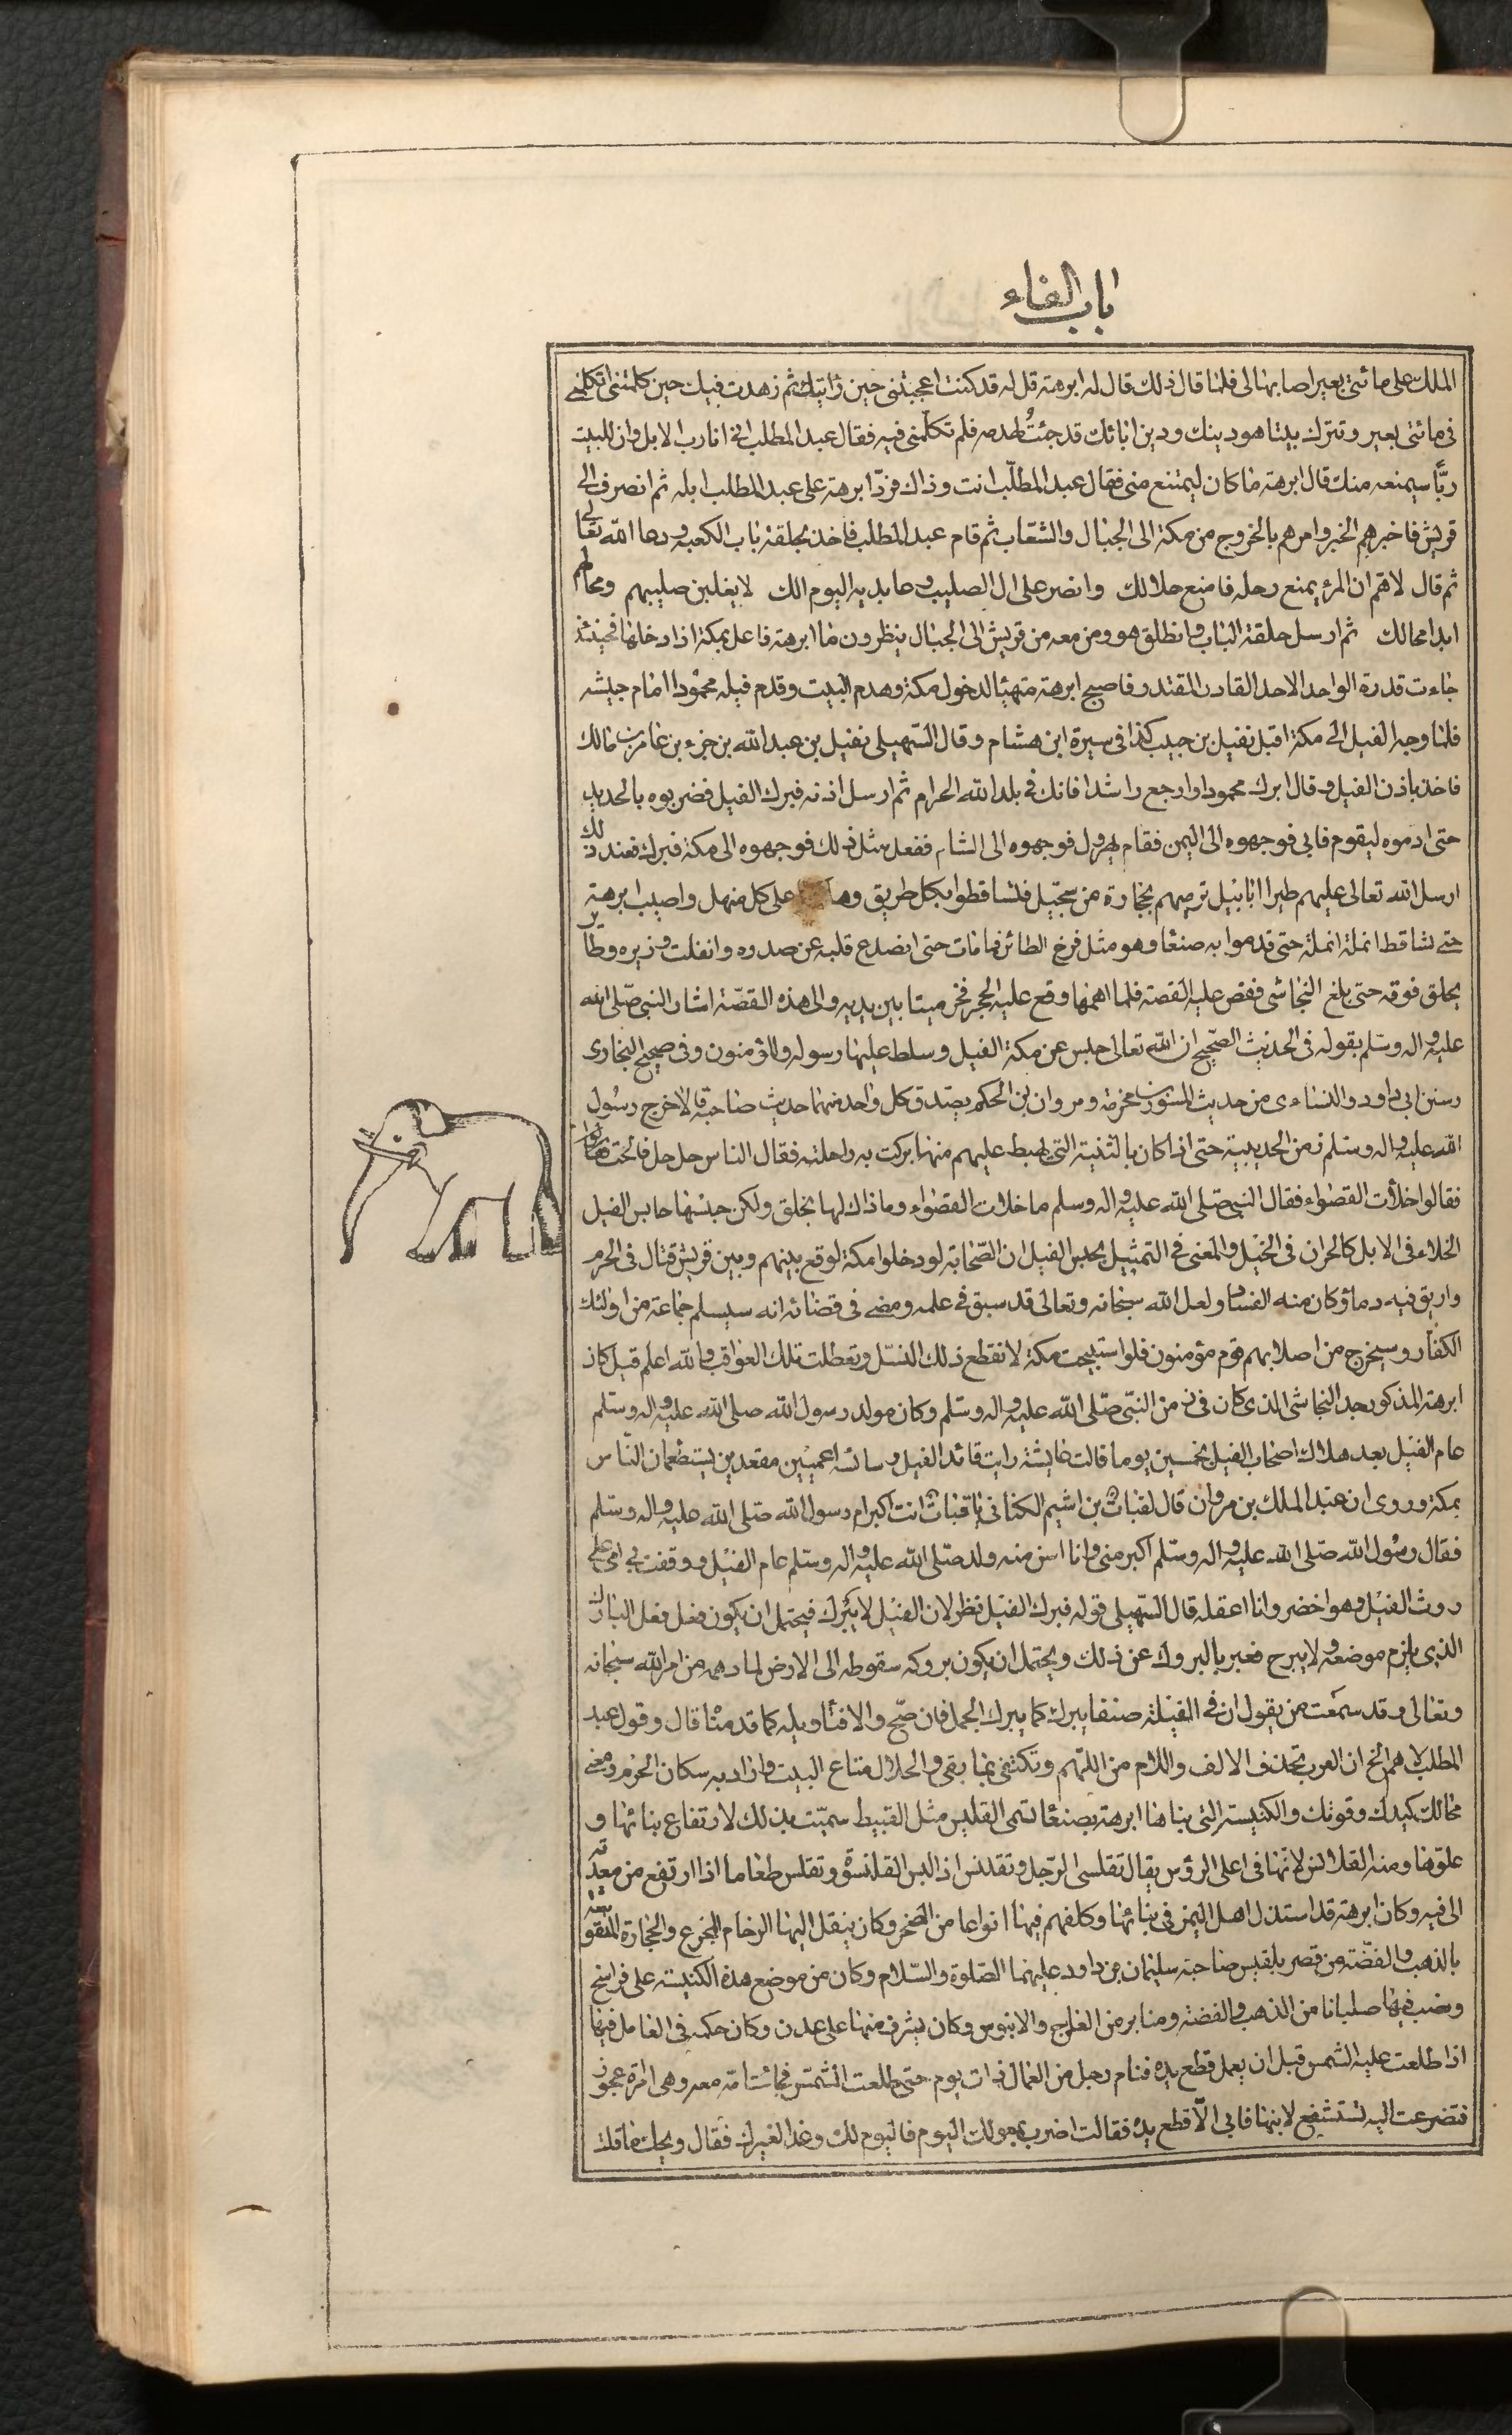 باب الفاء
الملك على مائتى بعير اصابها لى فلما قال ذلك قال له ابرهة قل له قد كنت اعجبتنى حين رأيتك ثم زهدت فيك حين كلمتنى اتكلمنى
فى مائتى بعير وتترك بيتا هو دينك ودين ابائك قد جئت لهدمه فلم تكلمنى فيه فقال عبد المطلب انى انا رب الابل وان للبيت
ربًّا سيمنعه منك قال ابرهة ما كان ليمتنع منى فقال عبد المطلّب انت وذاك فردّ ابرهة على عبد المطلب ابله ثم انصرف الى
قريش فاخبرهم الخبر وامرهم بالخروج من مكة الى الجبال والشعاب ثم قام عبد المطلب فاخذ بحلقة باب الكعبة ودعا اللّه تعالى
ثم قال لاهم ان المرء يمنع رحله فامنع حلالك وانصر على ال الصليب وعابديه اليوم الك لا يغلبن صليبهم ومحالهم
ابدا محالك ثم ارسل حلقة الباب وانطلق هو ومن معه من قريش الى الجبال ينظرون ما ابرهة فاعل بمكة اذا دخلها فحينئذ
جاءت قدرة الواحد الاحد القادر المقتدر فاصبح ابرهة متهيئا لدخول مكة وهدم البيت وقدم فيله محمودا امام جيشه
فلما وجه الفيل الى مكة اقبل نفيل بن حبيب كذا فى سيرة ابن هشام وقال السهيلى نفيل بن عبد اللّه بن جزء بن عامر بن مالك
فاخذ باذن الفيل وقال ابرك محمودا وارجع راشدا فانك فى بلد اللّه الحرام ثم ارسل اذنه فبرك الفيل فضربوه بالحديد
حتى ادموه ليقوم فابى فوجهوه الى اليمن فقام يهرول فوجهوه الى الشام ففعل مثل ذلك فوجهوه الى مكة فبرك فعند ذلك
ارسل اللّه تعالى عليهم طيرا ابابيل ترميهم بحجارة من سجّيل فتساقطوا بكل طريق على كل منهل واصيب ابرهة
حتى تساقط انملة انملة حتى قدموا به صنعا وهو مثل فرخ الطائر فما مات حتى انصدع قلبه عن صدره وانفلت وزيره وطائر
يحلق فوقه حتى بلغ النجاشى فقص عليه القصة فلما اتمها وقع عليه الحجر فخر ميتا بين يديه والى هذه القصّة اشار النبى صلى اللّه
عليه واله وسلم بقوله فى الحديث الصحيح ان اللّه تعالى حبس عن مكة الفيل وسلط عليها رسوله والمؤمنون وفى صحيح البخارى
وسنن ابى داود والنسائى من حديث المسور بن مخرمة ومروان بن الحكم يصدق كل واحد منهما حديث صاحبه قالا خرج رسول
اللّه عليه واله وسلم زمن الحديبية حتى اذا كان بالثنية التى يهبط عليهم منها بركت به راحلته فقال الناس حل حل فالحت
فقالوا خلأت القصواء فقال النبى صلى اللّه عليه واله وسلم ما خلات القصواء وما ذاك لها بخلق ولكن حبسها حابس الفيل
الخلاء فى الابل كالحران فى الخيل والمعنى فى التمثيل بحبس الفيل ان الصحابة لو دخلوا مكة لوقع بينهم وبين قريش قتال فى الحرم
واريق فيه دما وكان منه الفساد ولعل اللّه سبحانه وتعالى قد سبق فى علمه ومضى فى قضائه انه سيسلم جماعة من اولئك
الكفار وسيخرج من اصلابهم قوم مؤمنون فلو استبيحت مكة لانقطع ذلك النسل وتعطلت تلك العواقب واللّه اعلم قيل كان
ابرهة المذكور جد النجاشى الذى كان فى زمن النبى صلى اللّه عليه واله وسلم وكان مولد رسول اللّه صلى اللّه عليه واله وسلم
عام الفيل بعد هلاك اصحاب الفيل بخمسين يوما قالت عايشة رايت قائد الفيل وسائسه اعميين مقعدين يستطعمان الناس
بمكة وروى ان عبد الملك بن مروان قال لقباث بن اشيم الكنانى يا قباث انت اكبر ام رسول اللّه صلى اللّه عليه واله وسلم
فقال رسول اللّه صلى اللّه عليه واله وسلم اكبر منى وانا اسن منه ولد صلى اللّه عليه واله وسلم عام الفيل ووقفت بى امى على
روث الفيل وهو اخضر وانا اعقله قال السهيلى قوله فبرك الفيل نظر لان الفيل لا يبرك فيحتمل ان يكون فعل فعل البارك
الذى يلزم موضعه ولا يبرح فعبر بالبروك عن ذلك ويحتمل ان يكون بروكه سقوطه الى الارض لما دهمه من امر اللّه سبحانه
وتعالى وقد سمعت من يقول ان فى الفيلة صنفا يبرك كما يبرك الجمل فان صح والا فتأويله كما قدمنا قال وقول عبد
المطلب لاهم الخ ان العرب تحذف الالف واللام من اللهم وتكتفى بما بقى والحلال متاع البيت واراد به سكان الحرم ومعنى
محالك كيدك وقوتك والكنيسة التى بناها ابرهة بصنعا تسمى القليس مثل القبيط سميت بذلك لارتفاع بنائها و
علوها ومنه القلانس لانها فى اعلى الرؤس يقال تقلنس الرجل وتقلس اذا لبس القلنسوة وتقلس طعاما اذا ارتفع من معدته
الى فيه وكان ابرهة قد استذل اهل اليمن فى بنائها وكلفهم فيها انواعا من السخر وكان ينقل اليها الرخام المجزع والحجارة المنقوشة
بالذهب والفضة من قصر بلقيس صاحبة سليمان بن داود عليهما الصلوة والسلام وكان من موضع هذه الكنيسة على فراسخ
ونصب فيها صلبانا من الذهب والفضة ومنابر من العاج والابنوس وكان يشرف منها على عدن وكان حكمه فى العامل فيها
اذا طلعت عليه الشمس قبل ان يعمل قطع يده فنام رجل من العمال ذات يوم حتى طلعت الشمس فجائت امه معه وهى امرءة عجوز
فتضرعت اليه تستشفع لابنها فابى الّا قطع يده فقالت اضرب بمعولك اليوم فاليوم لك وغدا لغيرك فقال ويحك ما قلت